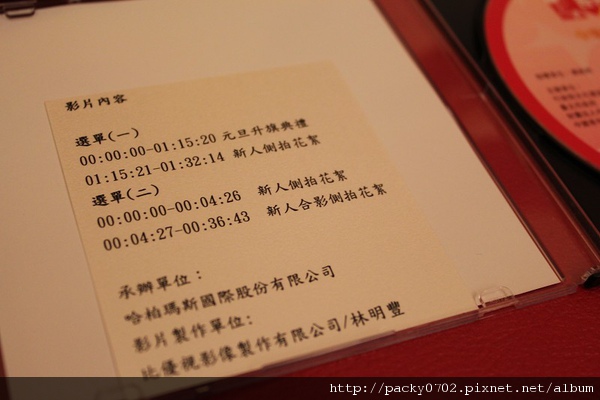 影片內容
選單(一)
00:00:00-01:15:20 元旦升旗典禮
01:15:21-01:32:14 新人側拍花絮
選單(二)
00:00:00-00:04:26 新人側拍花絮
00:04:27-00:36:43 新人合影側拍花絮
承辦單位：
哈柏瑪斯國際股份有限公司
影片製作單位:
比優視影像製作有限公司/林明豐
http://packy0702.pixnet.net/album